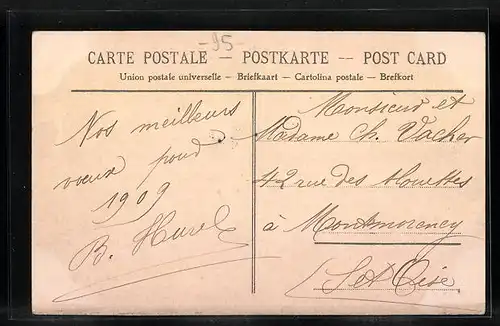 95
CARTE POSTALE — POSTKARTE — POST CARD
Union postale universelle - Briefkaart - Cartolina postale - Brefkort
Nos meilleurs
voeux pour
1909
B. Hurel
Monsieur et
Madame Ch. Vacher
42 rue des Alouettes
à Montmorency
Set Oise